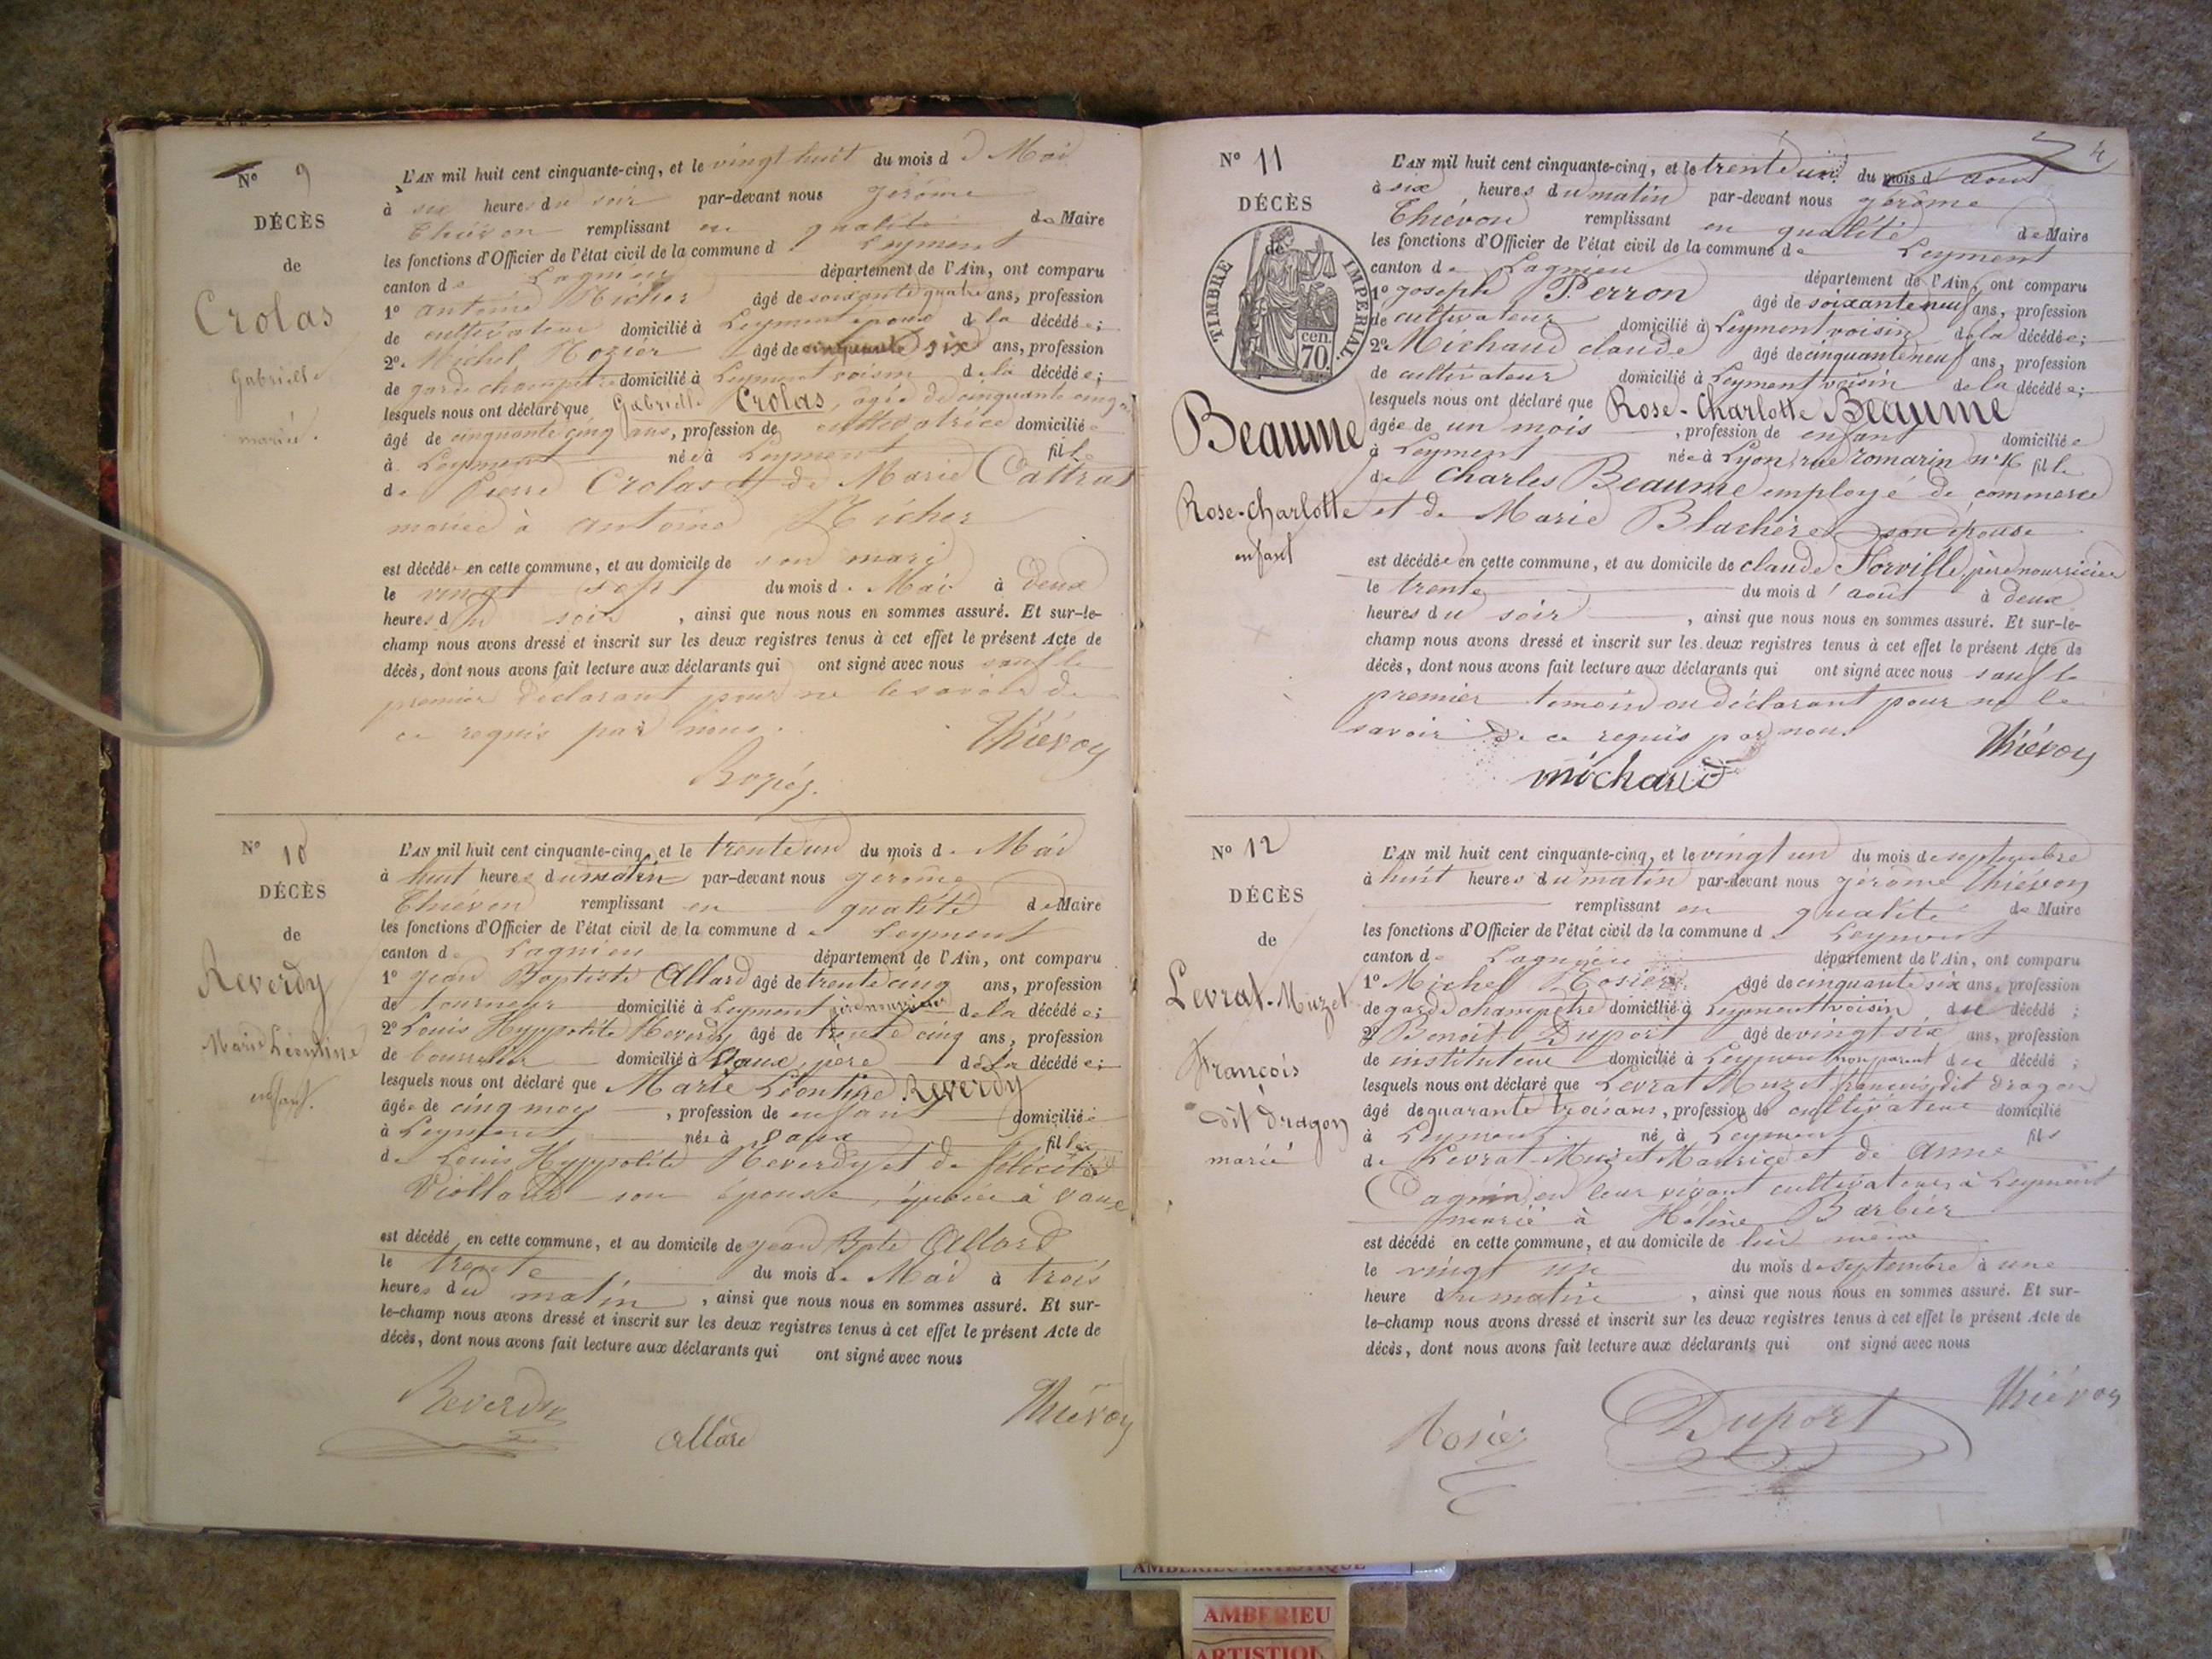 Nº 9
DÉCÈS
de
Crolas
Gabrielle
mariée.
L'AN mil huit cent cinquante-cinq, et le vingt huit du mois d e Mai
à six heures du soir par-devant nous jérôme
Thiévon remplissant en qualité de Maire
les fonctions d'Officier de l'état civil de la commune d Leyment
canton de Lagnieu département de l'Ain, ont comparu
1º antoine Richer âgé de soixante quatre ans, profession
de cultivateur domicilié à Leyment époux de la décédée;
2º Michel Rozier âgé de cinquante six ans, profession
de garde champêtre domicilié à Leyment voisin de la décédée;
lesquels nous ont déclaré que Gabrielle Crolas, agée de cinquante cinq
âgé de cinquante cinq ans, profession de cultivatrice domiciliée
à Leyment née à Leyment fille
de Pierre Crolas et de Marie Cattrat
mariée à antoine Richer
est décédée en cette commune, et au domicile de son mari
le vingt sept du mois de Mai à deux
heures du soir, ainsi que nous nous en sommes assuré. Et sur-le-
champ nous avons dressé et inscrit sur les deux registres tenus à cet effet le présent Acte de
décès, dont nous avons fait lecture aux déclarants qui ont signé avec nous sauf le
premier déclarant pour ne le savoir de
ce requis par nous.
Thiévon
Rozier
Nº 10
DÉCÈS
de
Reverdy
Marie Léontine
enfant.
L'AN mil huit cent cinquante-cinq, et le trente un du mois de Mai
à huit heures du matin par-devant nous jérôme
Thiévon remplissant en qualité de Maire
les fonctions d'Officier de l'état civil de la commune de Leyment
canton de Lagnieu département de l'Ain, ont comparu
1º jean Baptiste Allard âgé de trente cinq ans, profession
de tourneur domicilié à Leyment père nourricier de la décédée;
2º Louis Hyppolite Reverdy âgé de trente cinq ans, profession
de bourrelier domicilié à Vaux, père de la décédée;
lesquels nous ont déclaré que Marie Léontine Reverdy
âgée de cinq mois, profession de enfant domiciliée
à Leyment née à Vaux fille
de Louis Hyppolite Reverdy et de félicité
son épouse, à Vaux
est décédé en cette commune, et au domicile de jean Bpte Allard
le trente du mois de Mai à trois
heures du matin, ainsi que nous nous en sommes assuré. Et sur-
le-champ nous avons dressé et inscrit sur les deux registres tenus à cet effet le présent Acte de
décès, dont nous avons fait lecture aux déclarants qui ont signé avec nous
Reverdy
Allard
Thiévon
4
Nº 11
DÉCÈS
de
TIMBRE IMPÉRIAL.
cen.
70.
Beaume
Rose-Charlotte
enfant
L'AN mil huit cent cinquante-cinq, et le trente un du mois d'aout
à six heures du matin par-devant nous jérôme
Thiévon remplissant en qualité de Maire
les fonctions d'Officier de l'état civil de la commune de Leyment
canton de Lagnieu département de l'Ain, ont comparu
1º joseph Perron âgé de soixante neuf ans, profession
de cultivateur domicilié à Leyment voisin de la décédée;
2º Michaud claude âgé de cinquante neuf ans, profession
de cultivateur domicilié à Leyment voisin de la décédée;
lesquels nous ont déclaré que Rose-Charlotte Beaume
âgée de un mois, profession de enfant domiciliée
à Leyment née à Lyon, rue romarin nº 16 fille
de Charles Beaume employé de commerce
et de Marie Blachère son épouse
est décédée en cette commune, et au domicile de claude Horville, père nourricier
le trente du mois d'aout à deux
heures du soir, ainsi que nous nous en sommes assuré. Et sur-le-
champ nous avons dressé et inscrit sur les deux registres tenus à cet effet le présent Acte de
décès, dont nous avons fait lecture aux déclarants qui ont signé avec nous sauf le
premier temoin ou déclarant pour ne le
savoir de ce requis par nous
Thiévon
michaud
Nº 12
DÉCÈS
de
Levrat-Muzet
François
dit dragon
marié
L'AN mil huit cent cinquante-cinq, et le vingt un du mois de septembre
à huit heures du matin par-devant nous jérôme Thiévon
remplissant en qualité de Maire
les fonctions d'Officier de l'état civil de la commune d Leyment
canton de Lagnieu département de l'Ain, ont comparu
1º Michel Rosier âgé de cinquante six ans, profession
de garde champêtre domicilié à Leyment voisin du décédé;
2º Benoit Duport âgé de vingt six ans, profession
de instituteur domicilié à Leyment non parent du décédé;
lesquels nous ont déclaré que Levrat Muzet françois dit dragon
âgé de quarante trois ans, profession de cultivateur domicilié
à Leyment né à Leyment fils
de Levrat-Muzet Maurice et de Anne
Cagnin en leur vivant cultivateurs à Leyment
marié à Hélène Barbier
est décédé en cette commune, et au domicile de lui même
le vingt un du mois de septembre à une
heure du matin, ainsi que nous nous en sommes assuré. Et sur-
le-champ nous avons dressé et inscrit sur les deux registres tenus à cet effet le présent Acte de
décès, dont nous avons fait lecture aux déclarants qui ont signé avec nous
Thiévon
Rosier
Duport
AMBERIEU ARTISTIQUE
AMBERIEU
ARTISTIQU